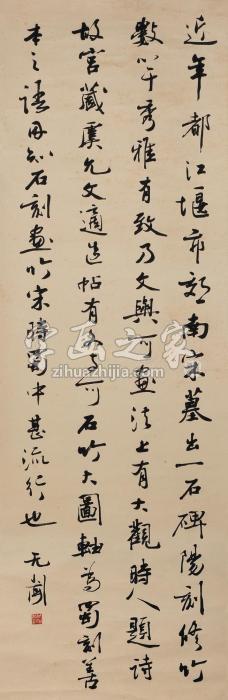 近年都江堰市郊南宋墓出一石碑陽刻修竹
數竿秀雅有致乃文與可畫法上有大觀時人題詩
故宮藏虞允文適造帖有與可石竹大圖軸為蜀刻善
本之語因知石刻畫竹宋時蜀中甚流行也 无闻
字画之家
zihuazhijia.com